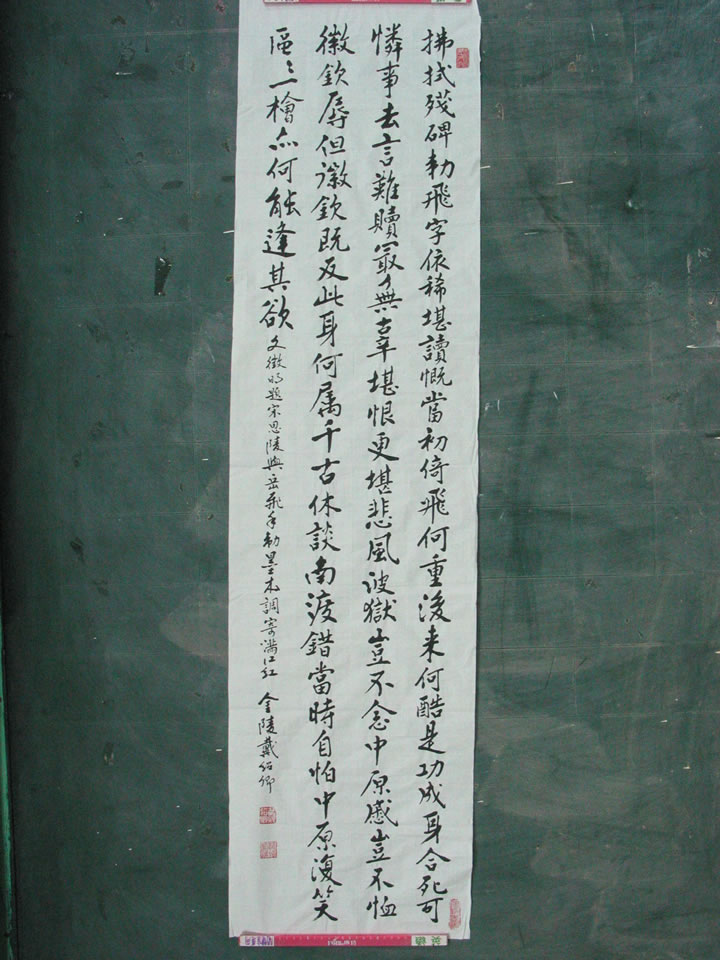 拂拭殘碑勅飛字依稀堪讀慨當初倚飛何重後来何酷是功成身合死可
憐事去言難贖最無辜堪恨更堪悲風波獄豈不念中原慼豈不恤
徽欽辱但徽欽既反此身何属千古休談南渡錯當時自怕中原復笑
區〻一檜亦何能逢其欲 文徵明題宋思陵與岳飛手勅墨本調寄滿江紅 金陵戴紹卿